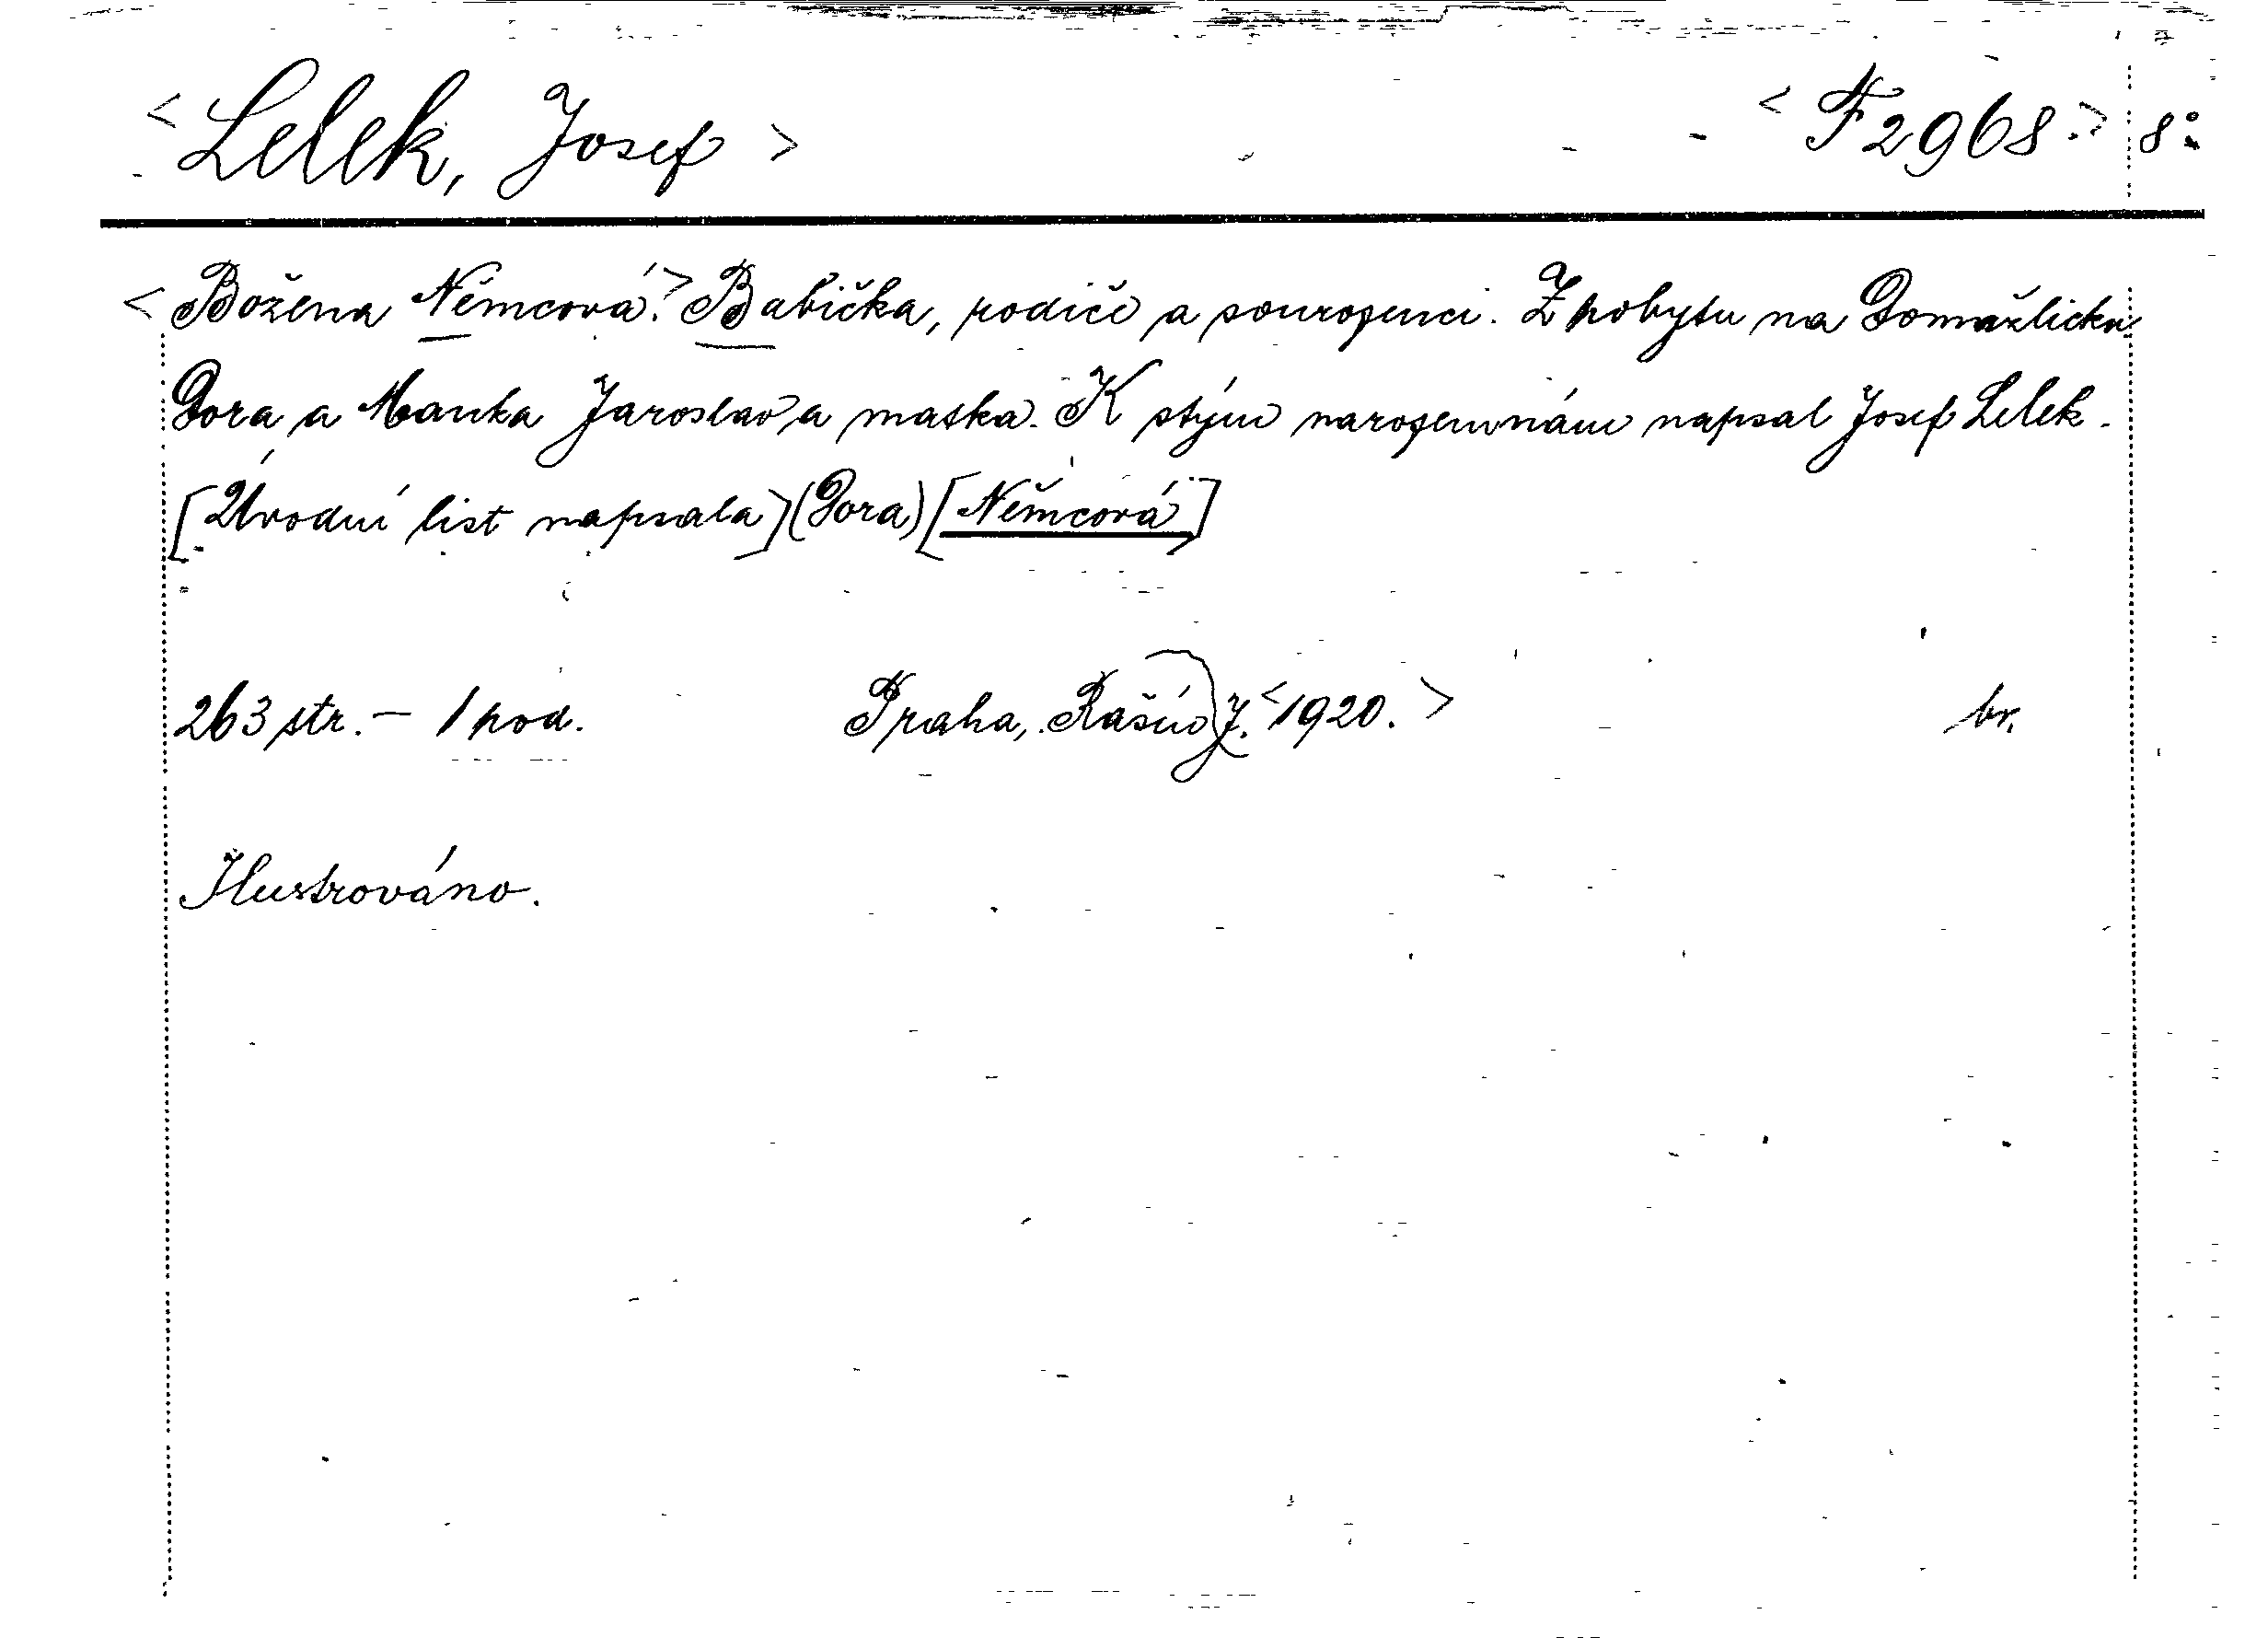 < Lelek, Josef > < F 2968.> 8°.
< Božena Němcová.> Babička, rodiče a sourozenci. Z pobytu na Domažlicku
Dora a Manka Jaroslav a matka. K stým narozeninám napsal Josef Lelek.
[Úvodní list napsala] (Dora) [Němcová]
263 str. – 1 pod. Praha, Rašín J. <1920. > br.
Ilustrováno.